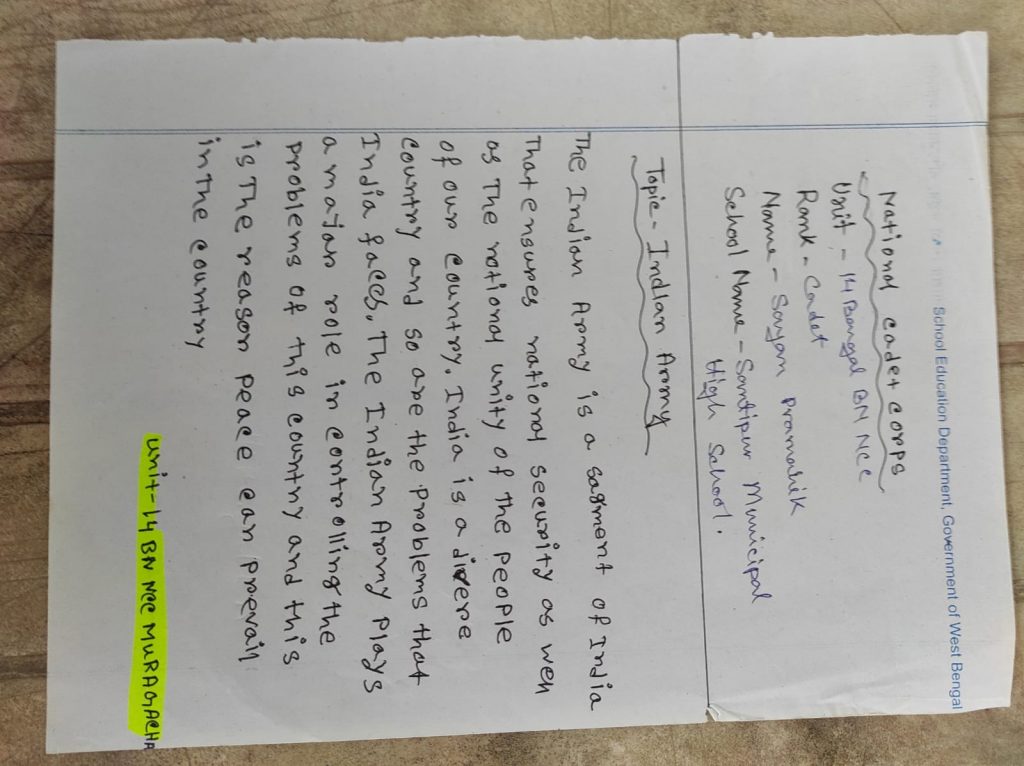 School Education Department, Government of West Bengal
National cadet corps
Unit - 14 Bengal BN NCC
Rank - Cadet
Name - Sayan Pramanik
School Name - Santipur Municipal
High School.
Topic - Indian Army
The Indian Army is a sagment of India
That ensures national security as well
as The national unity of the people
of our country. India is a diverse
country and so are the problems that
India faces. The Indian Army plays
a major role in controlling the
problems of this country and this
is The reason peace can prevail
in The country
Unit-14 BN NCC MURAGACHA